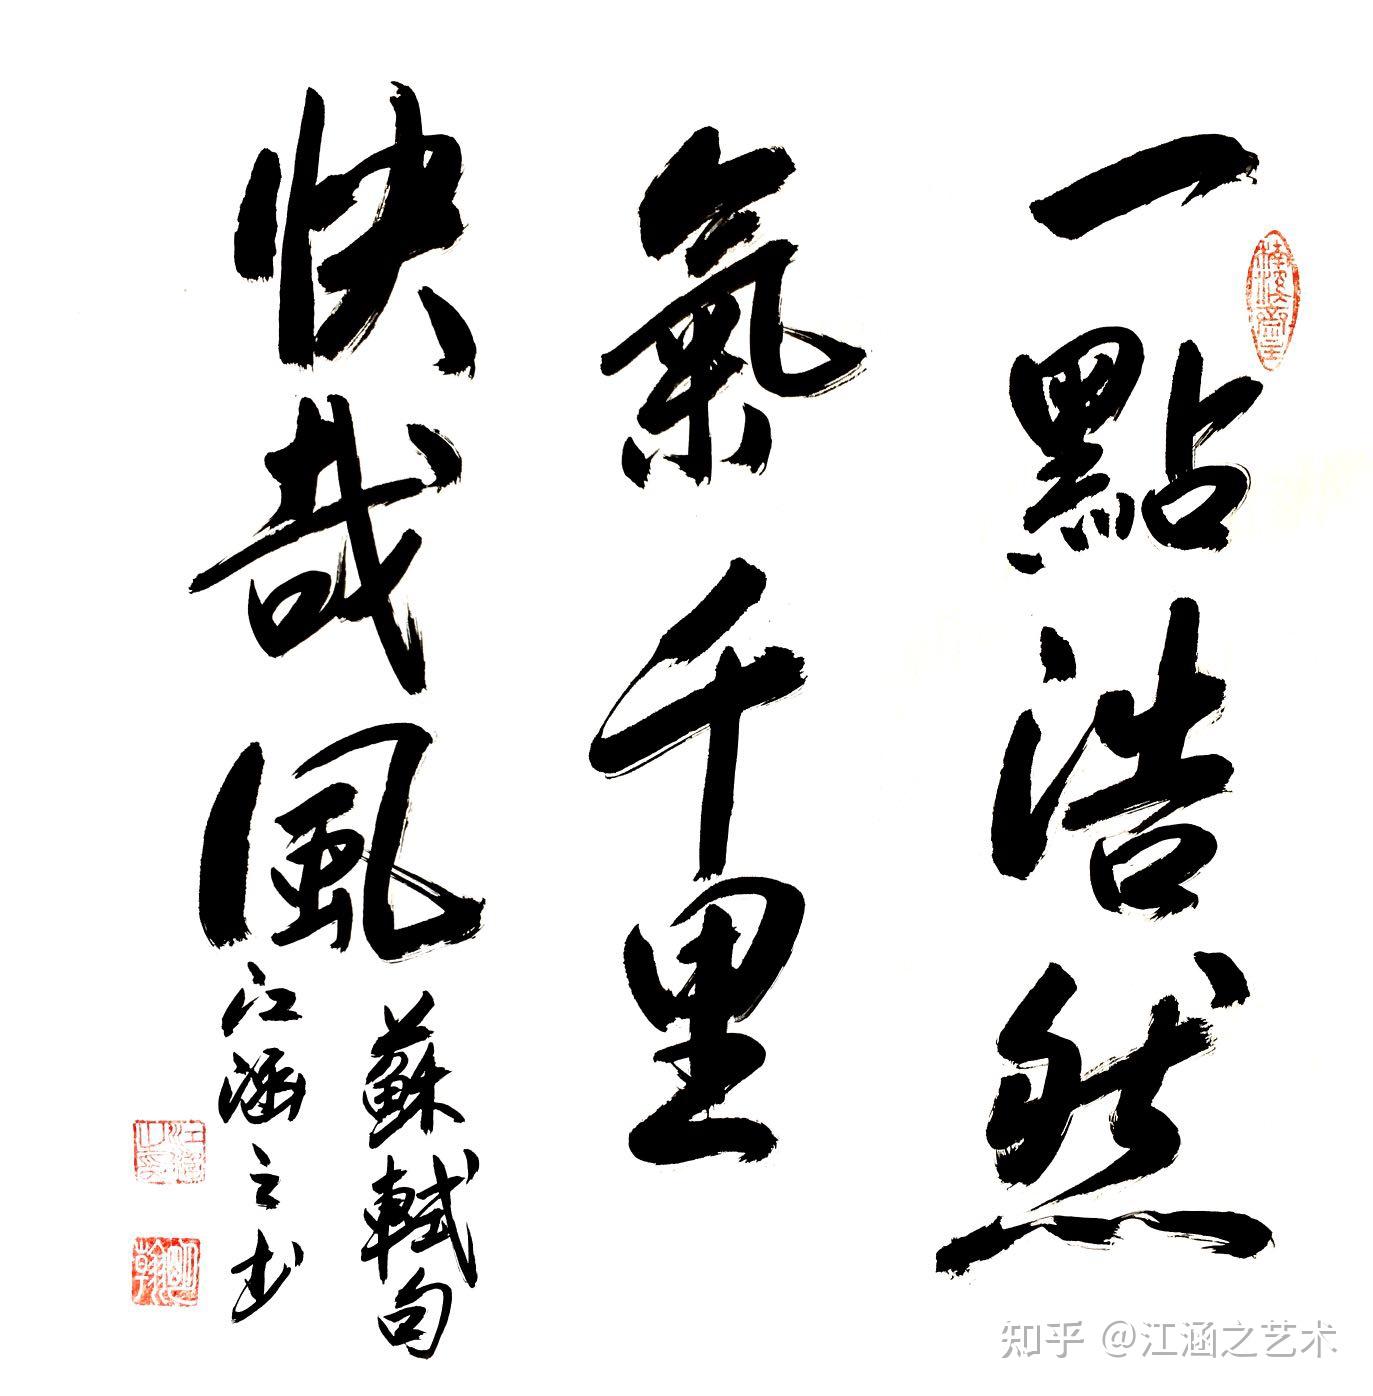 一點浩然
氣千里
快哉風
蘇軾句
江涵之书
知乎 @江涵之艺术